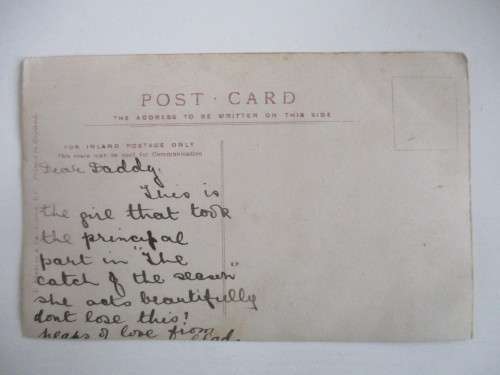 POST · CARD
THE ADDRESS TO BE WRITTEN ON THIS SIDE
FOR INLAND POSTAGE ONLY
This space may be used for Communication
Dear Daddy.
This is
the girl that took
the principal
part in "The
catch of the season"
she acts beautifully
dont lose this!
heaps of love from